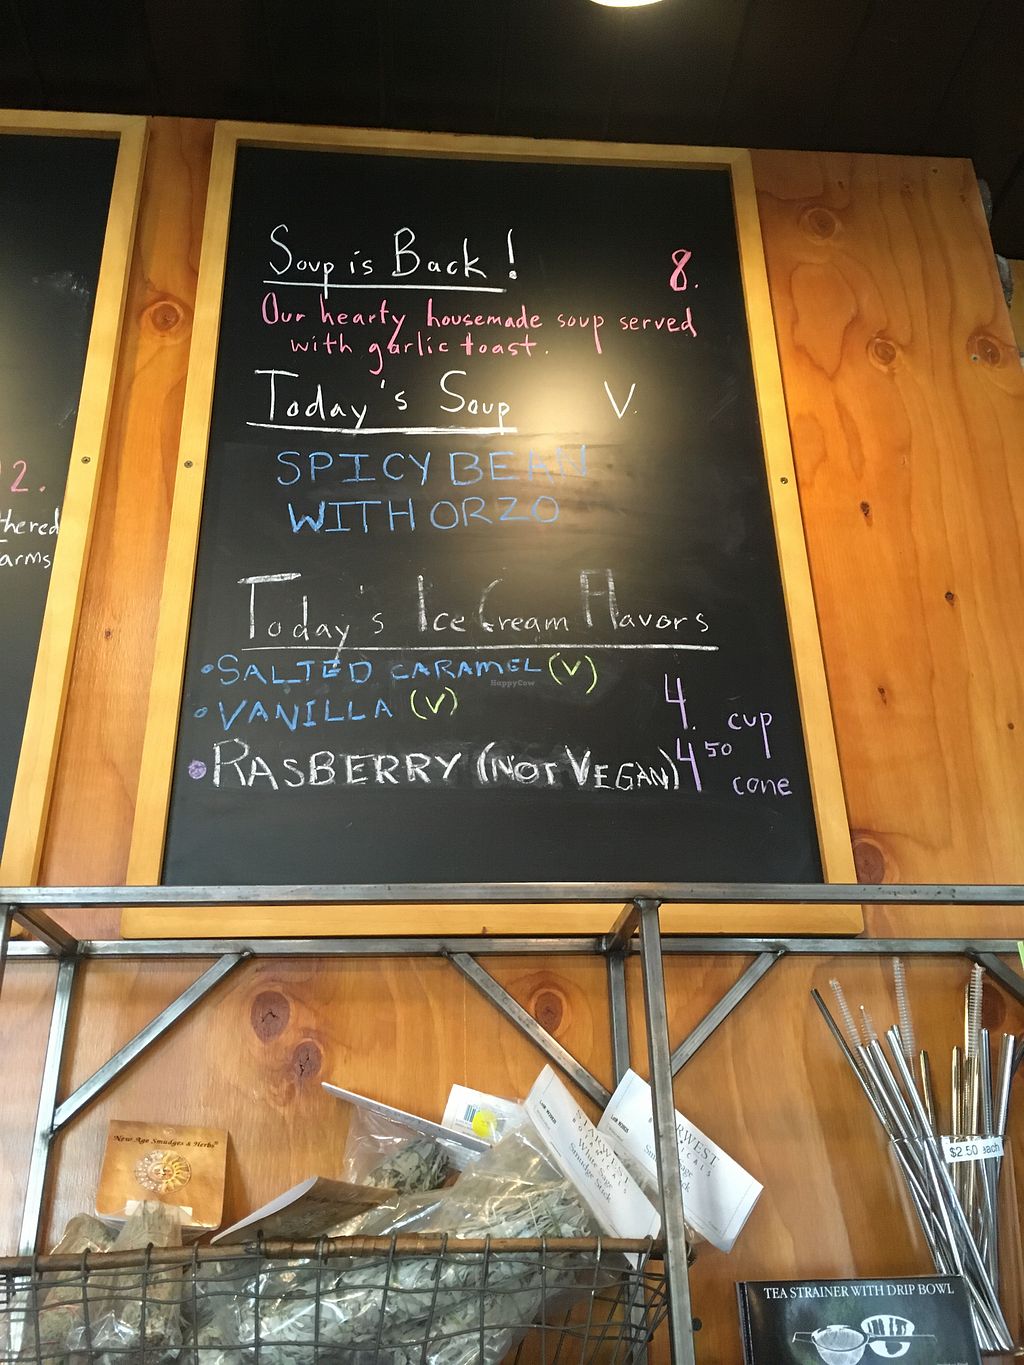 Soup is Back! 8.
Our hearty housemade soup served
with garlic toast.
Today's Soup V.
SPICY BEAN
WITH ORZO
Today's Ice Cream Flavors
• SALTED CARAMEL (V)
• VANILLA (V)
4. cup
• RASBERRY (NOT VEGAN)
4 50 cone
2.
thered
arms
HappyCow
New Age Smudges & Herbs
STARWEST
BOTANICALS
White Sage
Smudge Stick
RWEST
$2.50 each
TEA STRAINER WITH DRIP BOWL